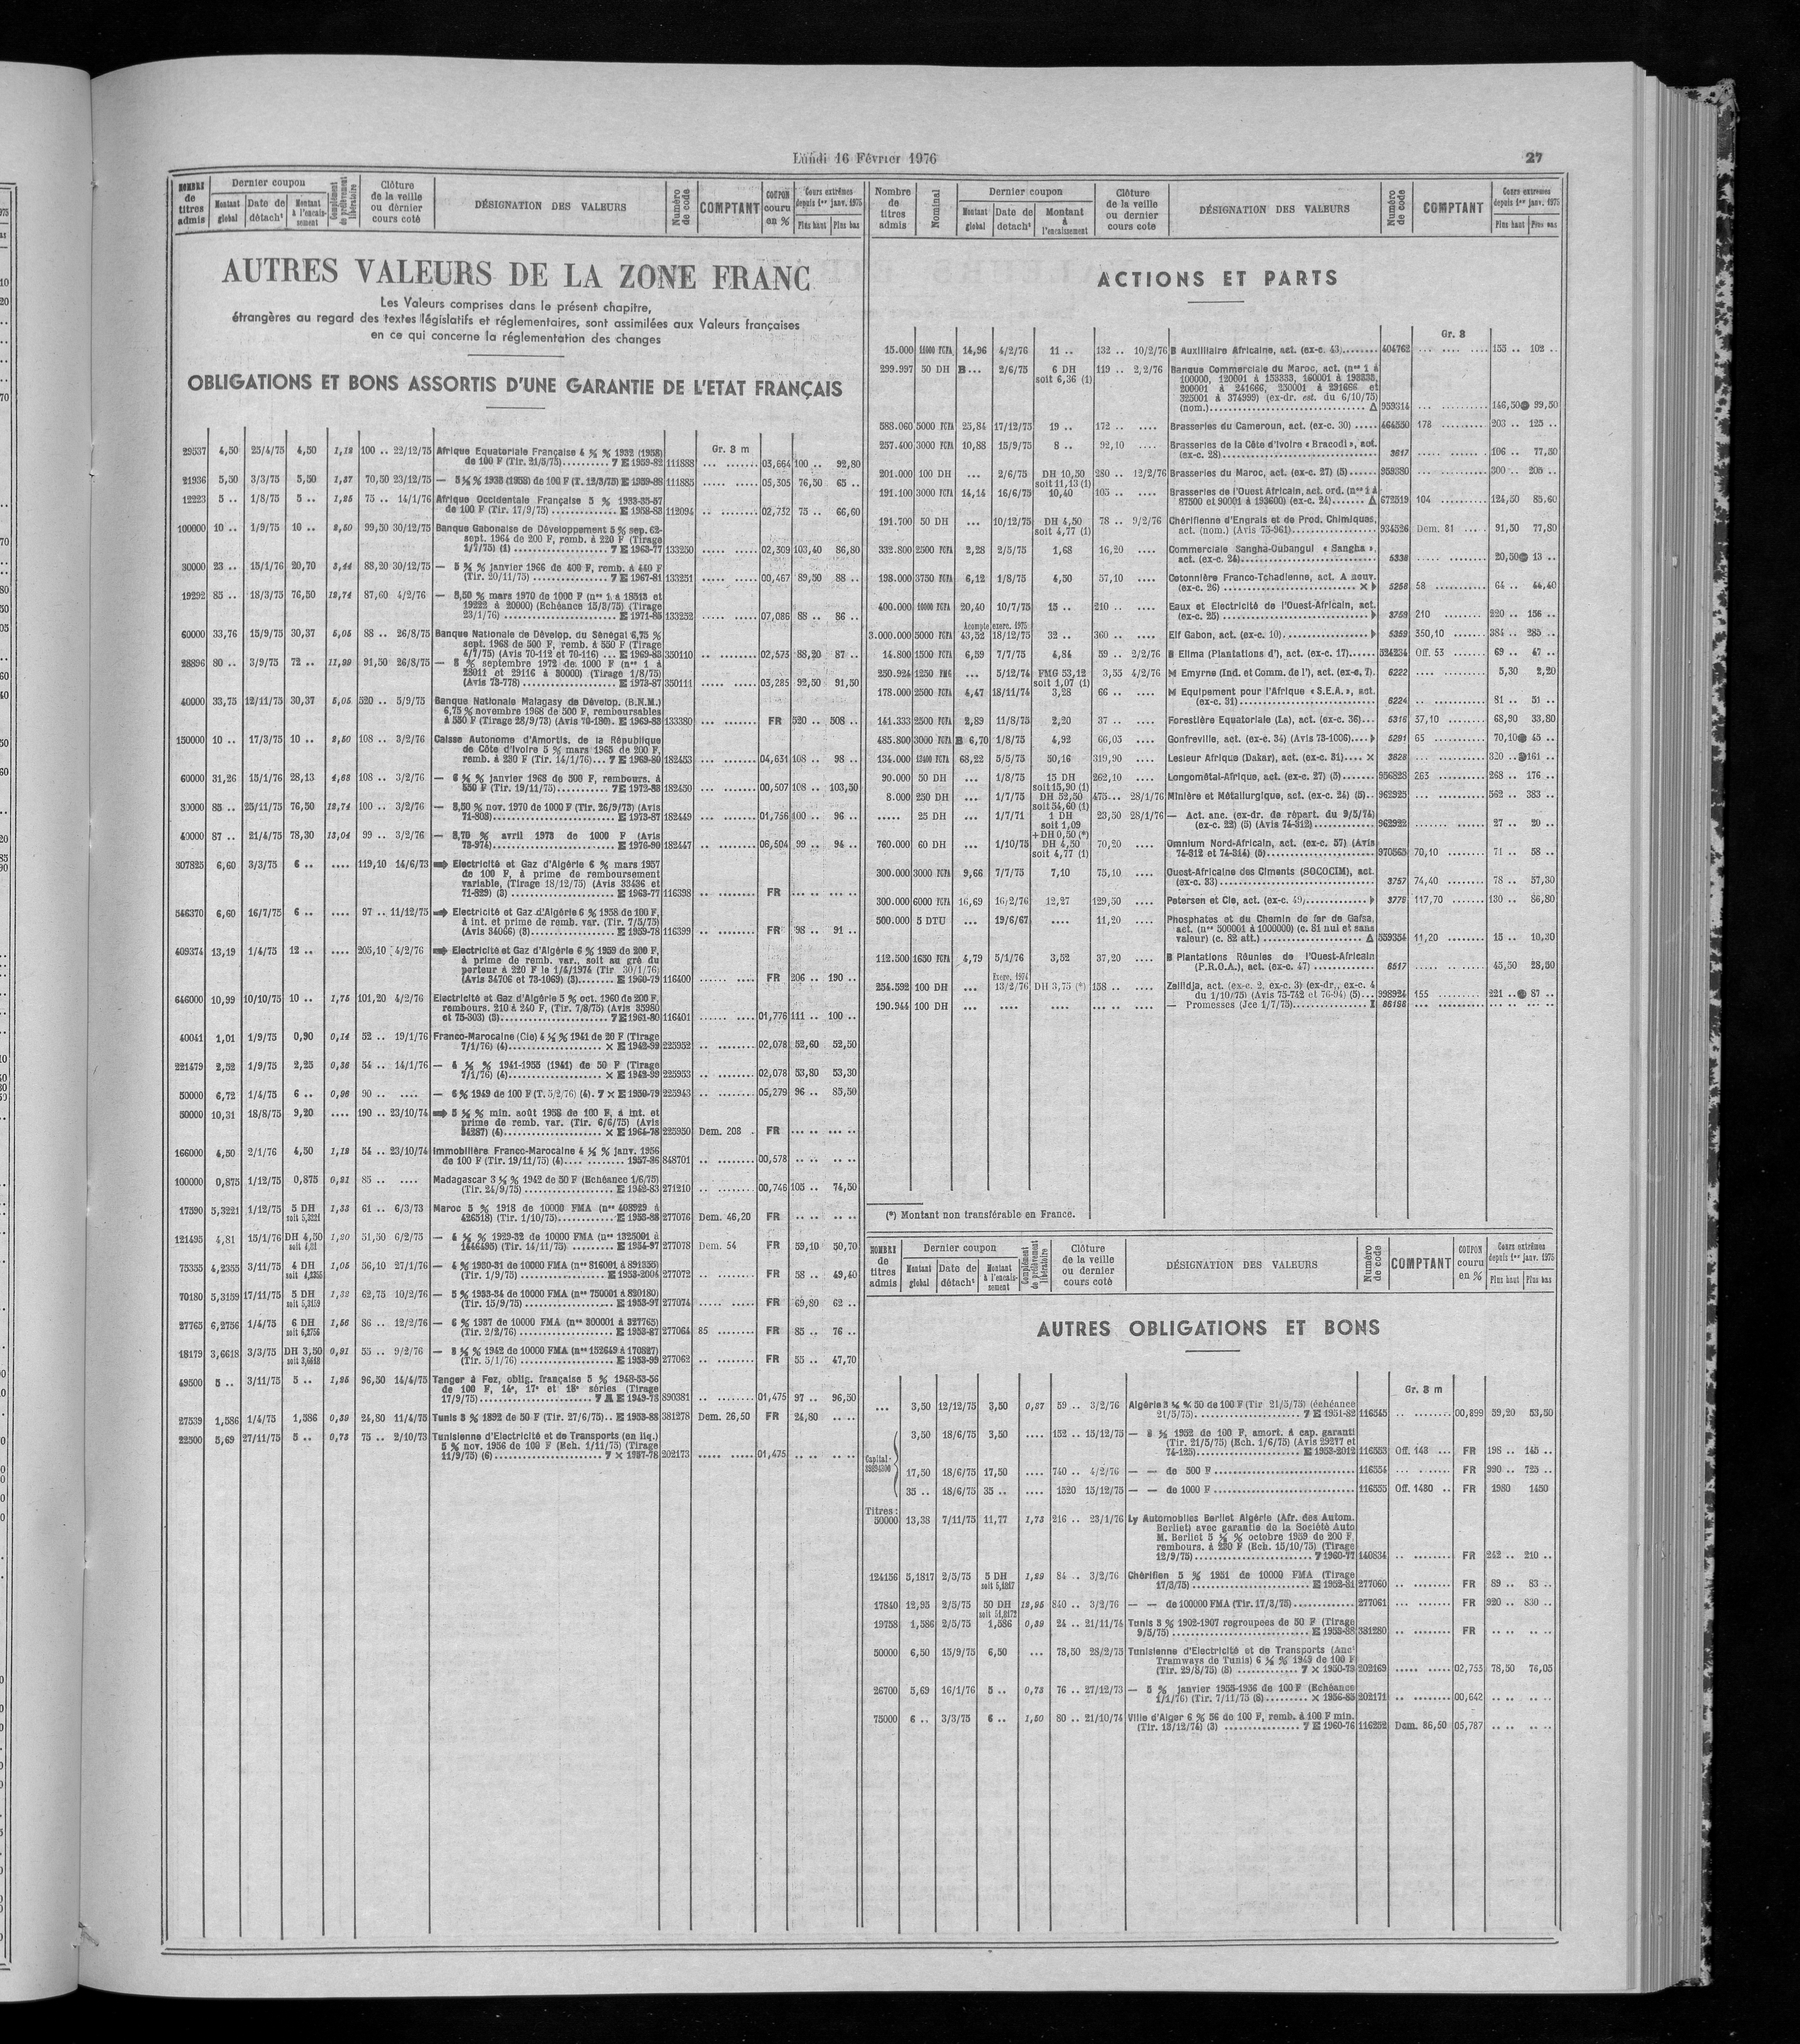 Lundi 16 Février 1976
27
NOMBRE de titres admis | Dernier coupon | Montant global | Date de détach^t | Montant à l'encaissement | Complément de prélèvement libératoire | Clôture de la veille ou dernier cours coté | DÉSIGNATION DES VALEURS | Numéro de code | COMPTANT | COUPON couru en % | Cours extrêmes depuis 1er janv. 1975 | Plus haut | Plus bas
AUTRES VALEURS DE LA ZONE FRANC
Les Valeurs comprises dans le présent chapitre,
étrangères au regard des textes législatifs et réglementaires, sont assimilées aux Valeurs françaises
en ce qui concerne la réglementation des changes
OBLIGATIONS ET BONS ASSORTIS D'UNE GARANTIE DE L'ETAT FRANÇAIS
Gr. 3 m
29537 4,50 25/4/75 4,50 1,12 100 .. 22/12/75 Afrique Equatoriale Française 4 ½ % 1932 (1958)
de 100 F (Tir. 21/5/75) 7 E 1959-82 111888 03,664 100 .. 92,80
21936 5,50 3/3/75 5,50 1,37 70,50 23/12/75 — 5 ½ % 1933 (1958) de 100 F (T. 12/3/75) E 1959-88 111885 05,305 76,50 65 ..
12223 5 .. 1/8/75 5 .. 1,25 75 .. 14/1/76 Afrique Occidentale Française 5 % 1933-35-57
de 100 F (Tir. 17/9/75) E 1958-83 112094 02,732 75 .. 66,60
100000 10 .. 1/9/75 10 .. 2,50 99,50 30/12/75 Banque Gabonaise de Développement 5 % sep. 62-
sept. 1964 de 200 F, remb. à 220 F (Tirage
1/7/75) (1) 7 E 1963-77 133250 02,309 103,40 86,80
30000 23 .. 15/1/76 20,70 88,20 30/12/75 — 5 ¾ % janvier 1966 de 400 F, remb. à 440 F
(Tir. 20/11/75) 7 E 1967-81 133251 00,467 89,50 88 ..
19292 85 .. 18/3/75 76,50 12,74 87,60 4/2/76 — 8,50 % mars 1970 de 1000 F (nos 1 à 18513 et
19222 à 20000) (Echéance 15/3/75) (Tirage
23/1/76) E 1971-85 133252 07,086 88 .. 86 ..
60000 33,76 15/9/75 30,37 5,05 88 .. 26/8/75 Banque Nationale de Dévelop. du Sénégal 6,75 %
sept. 1968 de 500 F, remb. à 550 F (Tirage
4/7/75) (Avis 70-112 et 70-116) E 1969-83 350110 02,573 88,20 87 ..
28896 80 .. 3/9/75 72 .. 11,99 91,50 26/8/75 — 8 % septembre 1972 de 1000 F (nos 1 à
28011 et 29116 à 30000) (Tirage 1/8/75)
(Avis 73-778) E 1973-87 350111 03,285 92,50 91,50
40000 33,75 12/11/75 30,37 5,05 520 .. 5/9/75 Banque Nationale Malagasy de Dévelop. (B.N.M.)
6,75 % novembre 1968 de 500 F, remboursables
à 550 F (Tirage 28/9/73) (Avis 70-180). E 1969-83 133380 FR 520 .. 508 ..
150000 10 .. 17/3/75 10 .. 2,50 108 .. 3/2/76 Caisse Autonome d'Amortis. de la République
de Côte d'Ivoire 5 % mars 1965 de 200 F,
remb. à 230 F (Tir. 14/1/76) 7 E 1969-80 182453 04,631 108 .. 98 ..
60000 31,26 15/1/76 28,13 4,68 108 .. 3/2/76 — 6 ¼ % janvier 1968 de 500 F, rembours. à
550 F (Tir. 19/11/75) 7 E 1972-83 182450 00,507 108 .. 103,50
30000 85 .. 25/11/75 76,50 12,74 100 .. 3/2/76 — 8,50 % nov. 1970 de 1000 F (Tir. 26/9/73) (Avis
71-808) E 1973-87 182449 01,756 100 .. 96 ..
40000 87 .. 21/4/75 78,30 13,04 99 .. 3/2/76 — 8,70 % avril 1973 de 1000 F (Avis
73-974) E 1976-90 182447 06,504 99 .. 94 ..
307825 6,60 3/3/75 6 .. .... 119,10 14/6/73 Electricité et Gaz d'Algérie 6 % mars 1957
de 100 F, à prime de remboursement
variable, (Tirage 18/12/75) (Avis 33436 et
71-829) (3) E 1963-77 116398 FR
546370 6,60 16/7/75 6 .. .... 97 .. 11/12/75 Electricité et Gaz d'Algérie 6 % 1958 de 100 F,
à int. et prime de remb. var. (Tir. 7/5/75)
(Avis 34066) (3) E 1959-78 116399 FR 98 .. 91 ..
409374 13,19 1/4/75 12 .. .... 205,10 4/2/76 Electricité et Gaz d'Algérie 6 % 1959 de 200 F,
à prime de remb. var., soit au gré du
porteur à 220 F le 1/4/1974 (Tir. 30/1/76)
(Avis 34706 et 73-1069) (3) E 1960-79 116400 FR 206 .. 190 ..
646000 10,99 10/10/75 10 .. 1,75 101,20 4/2/76 Electricité et Gaz d'Algérie 5 % oct. 1960 de 200 F,
rembours. 210 à 240 F, (Tir. 7/8/75) (Avis 35980
et 75-303) (3) 7 E 1961-80 116401 01,776 111 .. 100 ..
40041 1,01 1/9/75 0,90 0,14 52 .. 19/1/76 Franco-Marocaine (Cie) 4 ½ % 1941 de 20 F (Tirage
7/1/76) (4) × E 1942-99 225952 02,078 52,60 52,50
221479 2,52 1/9/75 2,25 0,36 54 .. 14/1/76 — 4 ½ % 1941-1955 (1941) de 50 F (Tirage
7/1/76) (4) × E 1942-99 225953 02,078 53,80 53,30
50000 6,72 1/4/75 6 .. 0,96 90 .. .... — 6 % 1949 de 100 F (T. 5/2/76) (4). 7 × E 1950-79 225943 05,279 96 .. 85,50
50000 10,31 18/8/75 9,20 .... 190 .. 23/10/74 5 ½ % min. août 1958 de 100 F, à int. et
prime de remb. var. (Tir. 6/6/75) (Avis
34287) (4) × E 1964-78 225950 Dem. 208 FR
166000 4,50 2/1/76 4,50 1,12 54 .. 23/10/74 Immobilière Franco-Marocaine 4 ½ % janv. 1956
de 100 F (Tir. 19/11/75) (4) 1957-86 848701 00,578
100000 0,875 1/12/75 0,875 0,21 85 .. .... Madagascar 3 ½ % 1942 de 50 F (Echéance 1/6/75)
(Tir. 24/9/75) E 1942-83 271210 00,746 105 .. 74,50
17590 5,3221 1/12/75 5 DH soit 5,3221 1,33 61 .. 6/3/73 Maroc 5 % 1918 de 10000 FMA (nos 408929 à
426518) (Tir. 1/10/75) E 1953-88 277076 Dem. 46,20 FR
121495 4,81 15/1/76 DH 4,50 soit 4,81 1,20 51,50 6/2/75 — 4 ½ % 1929-32 de 10000 FMA (nos 1325001 à
1446495) (Tir. 14/11/75) E 1954-97 277078 Dem. 54 FR 59,10 50,70
75355 4,2355 3/11/75 4 DH soit 4,2355 1,05 56,10 27/1/76 — 4 % 1930-31 de 10000 FMA (nos 816001 à 891355)
(Tir. 1/9/75) E 1953-2004 277072 FR 58 .. 49,40
70180 5,3159 17/11/75 5 DH soit 5,3159 1,32 62,75 10/2/76 — 5 % 1933-34 de 10000 FMA (nos 750001 à 820180)
(Tir. 15/9/75) E 1953-97 277074 FR 69,80 62 ..
27765 6,2756 1/4/75 6 DH soit 6,2756 1,56 86 .. 12/2/76 — 6 % 1937 de 10000 FMA (nos 300001 à 327765)
(Tir. 2/2/76) E 1953-87 277064 85 FR 85 .. 76 ..
18179 3,6618 3/3/75 DH 3,50 soit 3,6618 0,91 55 .. 9/2/76 — 3 ½ % 1942 de 10000 FMA (nos 152649 à 170827)
(Tir. 5/1/76) E 1953-99 277062 FR 55 .. 47,70
49500 5 .. 3/11/75 5 .. 1,25 96,50 14/4/75 Tanger à Fez, oblig. française 5 % 1948-53-56
de 100 F, 14e, 17e et 18e séries (Tirage
17/9/75) 7 A E 1949-78 890381 01,475 97 .. 96,50
27539 1,586 1/4/75 1,586 0,39 24,80 11/4/75 Tunis 3 % 1892 de 50 F (Tir. 27/6/75) E 1953-88 381278 Dem. 26,50 FR 24,80
22500 5,69 27/11/75 5 .. 0,73 75 .. 2/10/73 Tunisienne d'Electricité et de Transports (en liq.)
5 % nov. 1956 de 100 F (Ech. 1/11/75) (Tirage
11/9/75) (6) 7 × 1957-76 202173 01,475
Nombre de titres admis | Nominal | Dernier coupon | Montant global | Date de détach^t | Montant à l'encaissement | Clôture de la veille ou dernier cours coté | DÉSIGNATION DES VALEURS | Numéro de code | COMPTANT | Cours extrêmes depuis 1er janv. 1975 | Plus haut | Plus bas
ACTIONS ET PARTS
Gr. 3
15.000 11000 FCFA 14,96 4/2/76 11 .. 132 .. 10/2/76 B Auxiliaire Africaine, act. (ex-c. 43) 404762 155 .. 102 ..
299.997 50 DH B... 2/6/75 6 DH soit 6,36 (1) 119 .. 2/2/76 Banque Commerciale du Maroc, act. (nos 1 à
100000, 120001 à 153333, 160001 à 193333,
200001 à 241666, 250001 à 291666 et
325001 à 374999) (ex-dr. est. du 6/10/75)
(nom.) Δ 959314 146,50 99,50
588.060 5000 FCFA 25,84 17/12/75 19 .. 172 .. .... Brasseries du Cameroun, act. (ex-c. 30) 464550 178 203 .. 125 ..
257.400 3000 FCFA 10,88 15/9/75 8 .. 92,10 .... Brasseries de la Côte d'Ivoire « Bracodi », act.
(ex-c. 28) 3617 106 .. 77,50
201.000 100 DH ... 2/6/75 DH 10,50 soit 11,13 (1) 280 .. 12/2/76 Brasseries du Maroc, act. (ex-c. 27) (5) 959380 300 .. 205 ..
191.100 3000 FCFA 14,14 16/6/75 10,40 105 .. .... Brasseries de l'Ouest Africain, act. ord. (nos 1 à
87500 et 90001 à 193600) (ex-c. 24) Δ 672519 104 124,50 85,60
191.700 50 DH ... 10/12/75 DH 4,50 soit 4,77 (1) 78 .. 9/2/76 Chérifienne d'Engrais et de Prod. Chimiques,
act. (nom.) (Avis 75-961) 934526 Dem. 81 91,50 77,80
332.800 2500 FCFA 2,28 2/5/75 1,68 16,20 .... Commerciale Sangha-Oubangui « Sangha »,
act. (ex-c. 24) 5336 20,50 13 ..
198.000 3750 FCFA 6,12 1/8/75 4,50 57,10 .... Cotonnière Franco-Tchadienne, act. A nouv.
(ex-c. 26) × 5256 58 64 .. 44,40
400.000 10000 FCFA 20,40 10/7/75 15 .. 210 .. .... Eaux et Electricité de l'Ouest-Africain, act.
(ex-c. 25) 3759 210 220 .. 156 ..
Acompte exerc. 1975
3.000.000 5000 FCFA 43,52 18/12/75 32 .. 360 .. .... Elf Gabon, act. (ex-c. 10) 5359 350,10 384 .. 285 ..
14.800 1500 FCFA 6,59 7/7/75 4,84 59 .. 2/2/76 B Elima (Plantations d'), act. (ex-c. 17) 524234 Off. 53 69 .. 47 ..
250.924 1250 FMG ... 5/12/74 FMG 53,12 soit 1,07 (1) 3,55 4/2/76 M Emyrne (Ind. et Comm. de l'), act. (ex-c. 7). 6222 5,30 2,20
178.000 2500 FCFA 4,47 18/11/74 3,28 66 .. .... M Equipement pour l'Afrique « S.E.A. », act.
(ex-c. 31) 6224 81 .. 51 ..
141.333 2500 FCFA 2,89 11/8/75 2,20 37 .. .... Forestière Equatoriale (La), act. (ex-c. 36) 5316 37,10 68,90 33,80
485.800 3000 FCFA B 6,70 1/8/75 4,92 66,05 .... Gonfreville, act. (ex-c. 34) (Avis 73-1006) 5291 65 70,10 45 ..
134.000 13400 FCFA 68,22 5/5/75 50,16 319,90 .... Lesieur Afrique (Dakar), act. (ex-c. 31) × 3628 320 .. 161 ..
90.000 50 DH ... 1/8/75 15 DH soit 15,90 (1) 262,10 .... Longométal-Afrique, act. (ex-c. 27) (5) 956828 263 268 .. 176 ..
8.000 250 DH ... 1/7/75 DH 52,50 soit 54,60 (1) 475 .. 28/1/76 Minière et Métallurgique, act. (ex-c. 24) (5) 962925 562 .. 383 ..
..... 25 DH ... 1/7/71 1 DH soit 1,09 + DH 0,50 (*) 23,50 28/1/76 — Act. anc. (ex-dr. de répart. du 9/5/74)
(ex-c. 22) (5) (Avis 74-312) 962922 27 .. 20 ..
760.000 60 DH ... 1/10/75 DH 4,50 soit 4,77 (1) 70,20 Omnium Nord-Africain, act. (ex-c. 57) (Avis
74-312 et 74-314) (5) 970565 70,10 71 .. 58 ..
300.000 3000 FCFA 9,66 7/7/75 7,10 75,10 .... Ouest-Africaine des Ciments (SOCOCIM), act.
(ex-c. 33) 3757 74,40 78 .. 57,30
300.000 6000 FCFA 16,69 16/2/76 12,27 129,50 .... Petersen et Cie, act. (ex-c. 49) 3779 117,70 130 .. 86,80
500.000 5 DTU ... 19/6/67 .... 11,20 .... Phosphates et du Chemin de fer de Gafsa,
act. (nos 500001 à 1000000) (c. 81 nul et sans
valeur) (c. 82 att.) Δ 559354 11,20 15 .. 10,30
112.500 1650 FCFA 4,79 5/1/76 3,52 37,20 .... B Plantations Réunies de l'Ouest-Africain
(P.R.O.A.), act. (ex-c. 47) 6517 45,50 28,50
Exerc. 1974
254.592 100 DH ... 13/2/76 DH 3,75 (*) 158 .. .... Zellidja, act. (ex-c. 2, ex-c. 3) (ex-dr., ex-c. 4
du 1/10/75) (Avis 75-742 et 76-94) (5) 998924 155 221 .. 87 ..
190.944 100 DH — Promesses (Jce 1/7/75) 86198
(*) Montant non transférable en France.
NOMBRE de titres admis | Dernier coupon | Montant global | Date de détach^t | Montant à l'encaissement | Complément de prélèvement libératoire | Clôture de la veille ou dernier cours coté | DÉSIGNATION DES VALEURS | Numéro de code | COMPTANT | COUPON couru en % | Cours extrêmes depuis 1er janv. 1975 | Plus haut | Plus bas
AUTRES OBLIGATIONS ET BONS
Gr. 3 m
... 3,50 12/12/75 3,50 0,87 59 .. 3/2/76 Algérie 3 ½ % 50 de 100 F (Tir. 21/5/75) (échéance
21/5/75) 7 E 1951-82 116545 00,899 59,20 53,50
3,50 18/6/75 3,50 .... 152 .. 15/12/75 — 3 % 1952 de 100 F, amort. à cap. garanti
(Tir. 21/5/75) (Ech. 1/6/75) (Avis 29277 et
74-125) E 1953-2012 116553 Off. 148 FR 198 .. 145 ..
Capital :
17,50 18/6/75 17,50 .... 740 .. 4/2/76 — — de 500 F 116554 FR 990 .. 725 ..
35 .. 18/6/75 35 .. .... 1520 15/12/75 — — de 1000 F 116555 Off. 1480 FR 1980 1450
Titres :
50000 13,38 7/11/75 11,77 1,73 216 .. 23/1/76 Ly Automobiles Berliet Algérie (Afr. des Autom.
Berliet) avec garantie de la Société Auto
M. Berliet 5 ½ % octobre 1959 de 200 F,
rembours. à 230 F (Ech. 15/10/75) (Tirage
12/9/75) 7 1960-77 140834 FR 242 .. 210 ..
124156 5,1817 2/5/75 5 DH soit 5,1817 1,29 84 .. 3/2/76 Chérifien 5 % 1951 de 10000 FMA (Tirage
17/3/75) E 1952-81 277060 FR 89 .. 83 ..
17840 12,95 2/5/75 50 DH soit 51,8172 12,95 840 .. 3/2/76 — — de 100000 FMA (Tir. 17/3/75) 277061 FR 920 .. 830 ..
19758 1,586 2/5/75 1,586 0,39 24 .. 21/11/74 Tunis 3 % 1902-1907 regroupées de 50 F (Tirage
9/5/75) E 1953-88 381280 FR
50000 6,50 15/9/75 6,50 ... 78,50 28/2/75 Tunisienne d'Electricité et de Transports (Anct
Tramways de Tunis) 6 ½ % 1949 de 100 F
(Tir. 29/8/75) (8) 7 × 1950-79 202169 02,753 78,50 76,05
26700 5,69 16/1/76 5 .. 0,73 76 .. 27/12/73 — 5 % janvier 1955-1956 de 100 F (Echéance
1/1/76) (Tir. 7/11/75 (8) × 1956-85 202171 00,642
75000 6 .. 3/3/75 6 .. 1,50 80 .. 21/10/74 Ville d'Alger 6 % 56 de 100 F, remb. à 100 F min.
(Tir. 13/12/74) (3) 7 E 1960-76 116252 Dem. 86,50 05,787